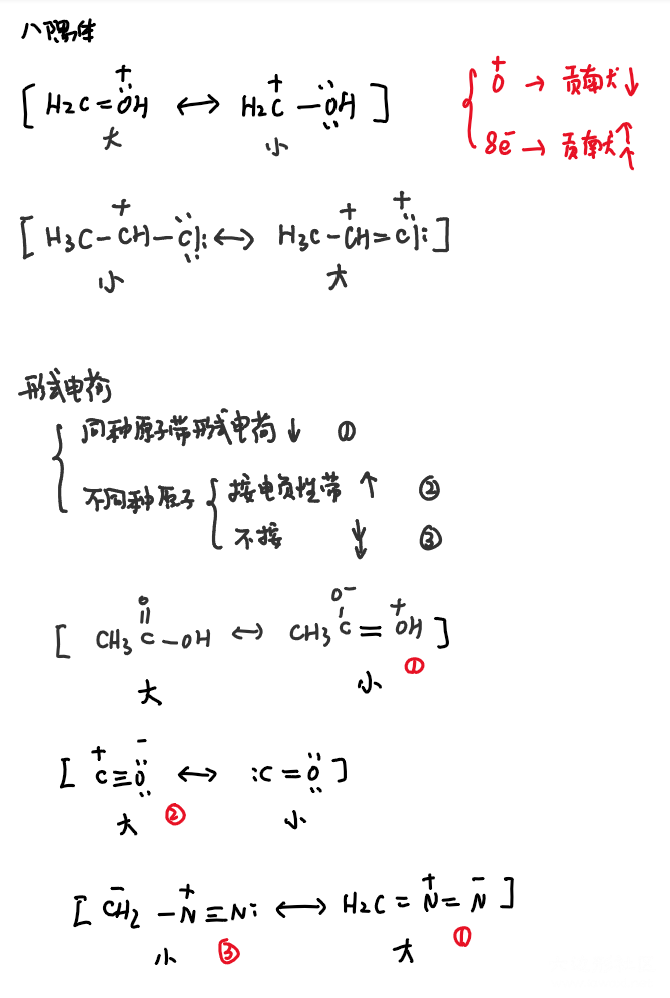 八隅体
[ H₂C=ÖH⁺ ↔ H₂C⁺—ÖH ]
大 小
O⁺ → 贡献大↓
8e⁻ → 贡献大↑↑
[ H₃C—CH⁺—Cl: ↔ H₃C—CH⁺=Cl⁺: ]
小 大
形式电荷
同种原子带形式电荷 ↓ ①
不同种原子
按电负性带 ↑ ②
不按 ↓↓ ③
[ CH₃C(=O)—OH ↔ CH₃C(O⁻)=OH⁺ ]
大 小 ①
[ C⁺≡Ö⁻ ↔ :C=Ö ]
大 ② 小
[ C⁻H₂—N⁺≡N: ↔ H₂C=N⁺=N⁻ ]
小 ③ 大 ①